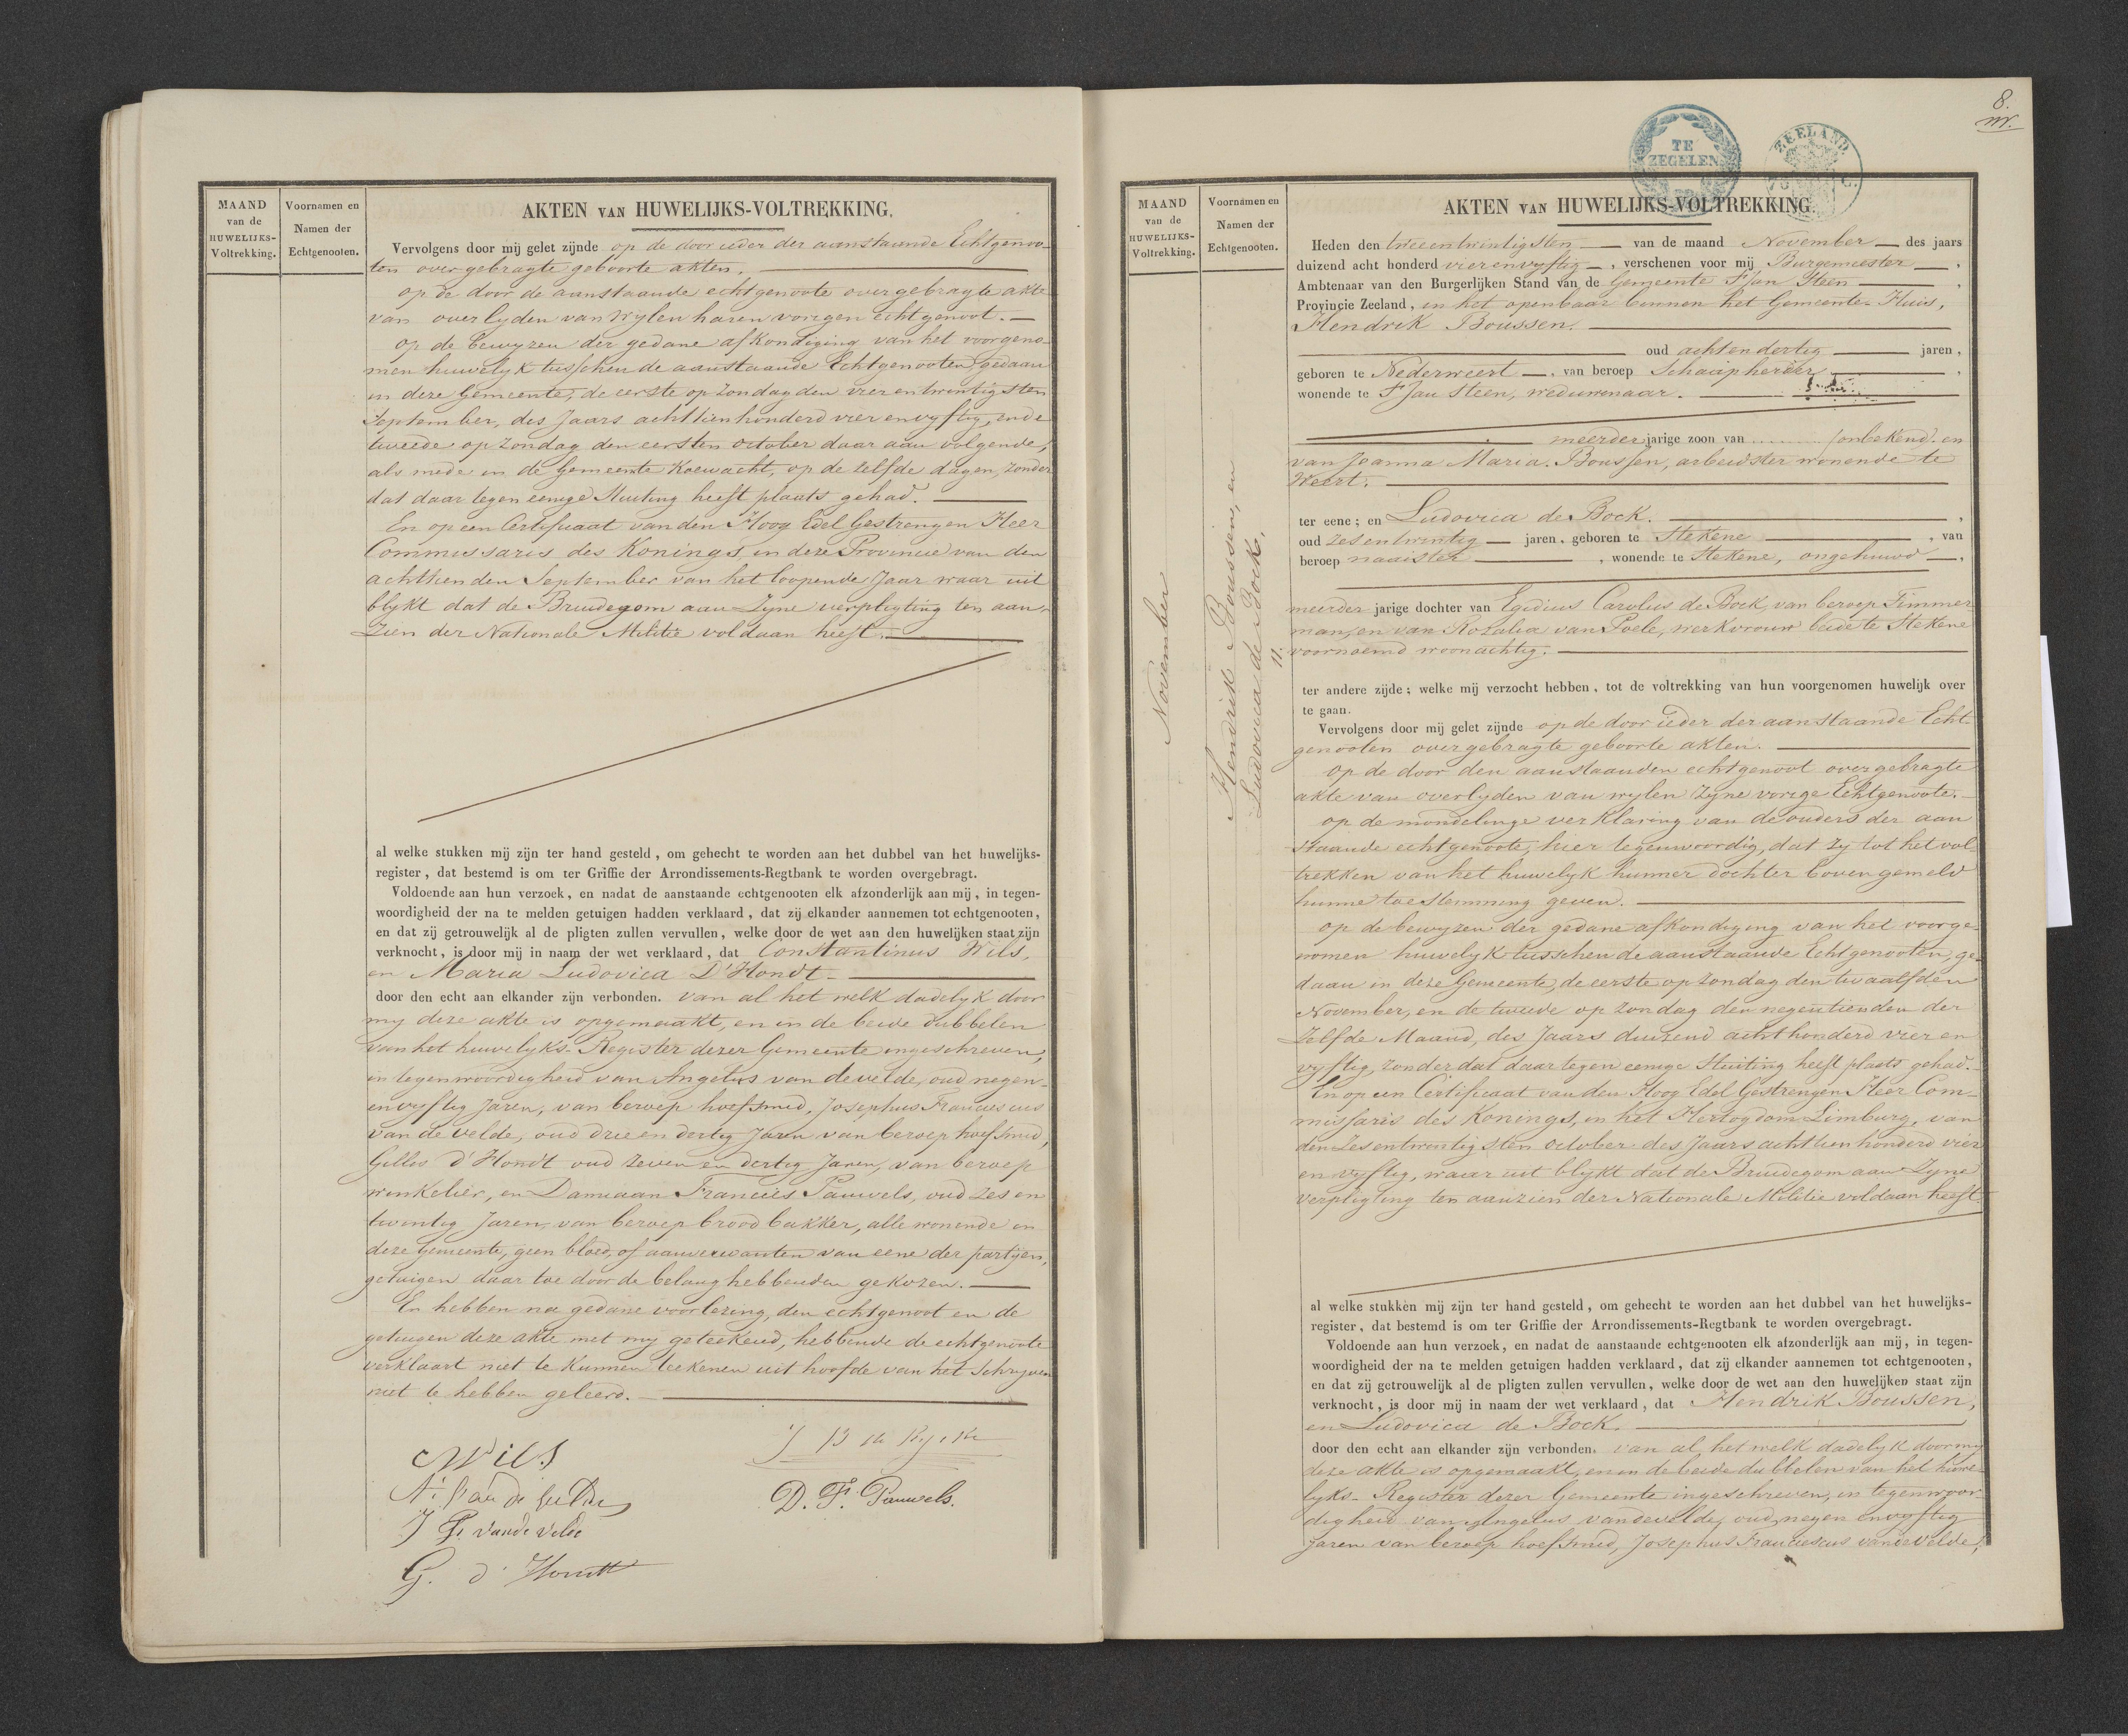 MAAND
van de
HUWELIJKS-
Voltrekking.
Voornamen en
Namen der
Echtgenooten.
AKTEN VAN HUWELIJKS-VOLTREKKING.
Vervolgens door mij gelet zijnde op de door ieder der aanstaande Echtgenoo-
ten overgebragte geboorte akten.
op de door de aanstaande echtgenoote overgebragte akte
van overlyden van wylen haren vorigen echtgenoot.
op de bewyzen der gedane afkondiging van het voorgeno-
men huwelyk tusschen de aanstaande Echtgenooten gedaan
in deze Gemeente, de eerste op zondag den vier en twentigsten
September, des Jaars achttien honderd vier en vyftig, en de
tweede op zondag den eersten october daar aan volgende,
als mede in de Gemeente Koewacht, op de zelfde dagen, zonder
dat daar tegen eenige Stuiting heeft plaats gehad.
En op een Certificaat van den Hoog Edel Gestrengen Heer
Commissaris des Konings in deze Provincie van den
achttienden September van het loopende Jaar waar uit
blykt dat de Bruidegom aan Zyne verpligting ten aan-
zien der Nationale Militie voldaan heeft.
al welke stukken mij zijn ter hand gesteld, om gehecht te worden aan het dubbel van het huwelijks-
register, dat bestemd is om ter Griffie der Arrondissements-Regtbank te worden overgebragt.
Voldoende aan hun verzoek, en nadat de aanstaande echtgenooten elk afzonderlijk aan mij, in tegen-
woordigheid der na te melden getuigen hadden verklaard, dat zij elkander aannemen tot echtgenooten,
en dat zij getrouwelijk al de pligten zullen vervullen, welke door de wet aan den huwelijken staat zijn
verknocht, is door mij in naam der wet verklaard, dat Constantinus Wils,
en Maria Ludovica D'Hondt
door den echt aan elkander zijn verbonden. van al het welk dadelyk door
my deze akte is opgemaakt, en in de beide dubbelen
van het huwelyks-Register dezer Gemeente ingeschreven,
in tegenwoordigheid van Angelus van de velde, oud negen-
en vyftig Jaren, van beroep hoefsmid, Josephus Franciscus
van de velde, oud drie en dertig Jaren van beroep hoefsmid,
Gillis d'Hondt oud zeven en dertig Jaren, van beroep
winkelier, en Damiaan Francies Pauwels, oud zes en
twentig Jaren, van beroep brood bakker, alle wonende in
deze Gemeente, geen bloed, of aanverwanten van eene der partijen,
getuigen daar toe door de belang hebbenden gekozen.
En hebben na gedane voorlezing, den echtgenoot en de
getuigen deze akte met my geteekend, hebbende de echtgenoote
verklaart niet te kunnen teekenen uit hoofde van het Schryven
niet te hebben geleerd.
C Wils
A. Van de Velde
J F. vande velde
G. d'Hondt
D. F. Pauwels.
8.
TE
ZEGELEN
ZEELAND
MAAND
van de
HUWELIJKS-
Voltrekking.
Voornamen en
Namen der
Echtgenooten.
November
Hendrik Boussen, en
Ludovica de Bock.
11.
AKTEN VAN HUWELIJKS-VOLTREKKING.
Heden den tweeentwintigsten van de maand November des jaars
duizend acht honderd vier en vyftig, verschenen voor mij Burgemeester,
Ambtenaar van den Burgerlijken Stand van de Gemeente St Jan Steen,
Provincie Zeeland, en het openbaar binnen het Gemeente-Huis,
Hendrik Boussen.
oud achtendertig jaren,
geboren te Nederweert, van beroep Schaapherder,
wonende te St Jan Steen, weduwenaar.
meerderjarige zoon van ........ (onbekend. en
van Joanna Maria. Boussen, arbeidster wonende te
Weert.
ter eene; en Ludovica de Bock.,
oud zes en twintig jaren, geboren te Stekene, van
beroep naaister, wonende te Stekene, ongehuwd,
meerder jarige dochter van Egidius Carolus de Bock, van beroep Timmer
man, en van Rozalia van Poele, werkvrouw beide te Stekene
voornoemd woonachtig.
ter andere zijde; welke mij verzocht hebben, tot de voltrekking van hun voorgenomen huwelijk over
te gaan.
Vervolgens door mij gelet zijnde op de door ieder der aanstaande Echt-
genooten overgebragte geboorte akten.
op de door den aanstaanden echtgenoot overgebragte
akte van overlyden van wylen zyne vorige Echtgenoote.
op de mondelinge verklaring van de ouders der aan
staande echtgenoote, hier tegenwoordig, dat zy tot het vol-
trekken van het huwelyk hunner dochter boven gemeld
hunne toestemming geven.
op de bewyzen der gedane afkondiging van het voorge-
nomen huwelyk tusschen de aanstaande Echtgenooten, ge-
daan in deze Gemeente, de eerste op zondag den twaalfden
November, en de tweede op zondag den negentienden der
Zelfde Maand, des Jaars duizend acht honderd vier en
vyftig, zonder dat daar tegen eenige Stuiting heeft plaats gehad.
En op een Certificaat van den Hoog Edel Gestrengen Heer Com-
missaris des Konings, in het Hertogdom Limburg, van
den zesentwintigsten october des Jaars achttien honderd vier
en vyftig, waar uit blykt dat de Bruidegom aan Zyne
verpligting ten aanzien der Nationale Militie voldaan heeft.
al welke stukken mij zijn ter hand gesteld, om gehecht te worden aan het dubbel van het huwelijks-
register, dat bestemd is om ter Griffie der Arrondissements-Regtbank te worden overgebragt.
Voldoende aan hun verzoek, en nadat de aanstaande echtgenooten elk afzonderlijk aan mij, in tegen-
woordigheid der na te melden getuigen hadden verklaard, dat zij elkander aannemen tot echtgenooten,
en dat zij getrouwelijk al de pligten zullen vervullen, welke door de wet aan den huwelijken staat zijn
verknocht, is door mij in naam der wet verklaard, dat Hendrik Boussen,
en Ludovica de Bock.
door den echt aan elkander zijn verbonden. van al het welk dadelyk door my
deze akte is opgemaakt, en in de beide dubbelen van het huwe
lyks-Register dezer Gemeente ingeschreven, in tegenwoor-
digheid van Angelus vandevelde, oud negen en vyftig
Jaren van beroep hoefsmid, Josephus Franciescus vandevelde,